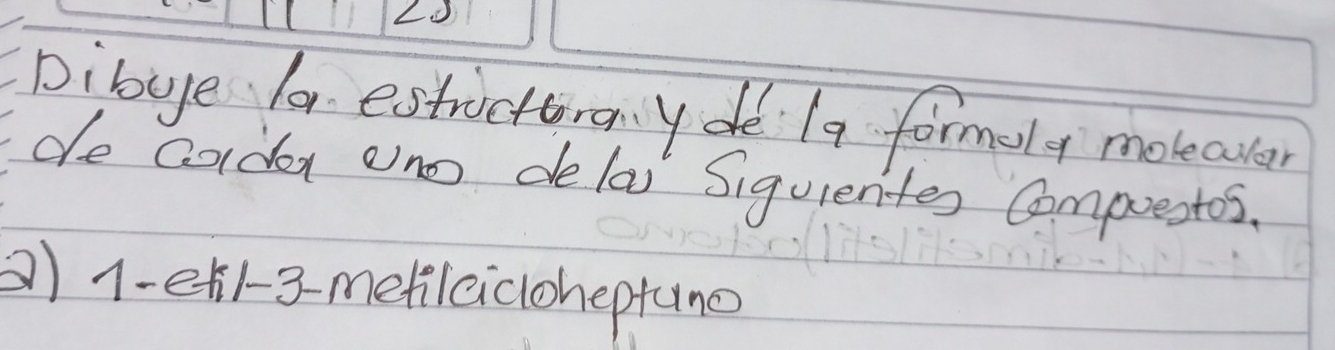 23
Dibuje la estructura y dé la fórmula molecular
de cada uno de los siguientes compuestos.
a) 1-etil-3-metilcicloheptano